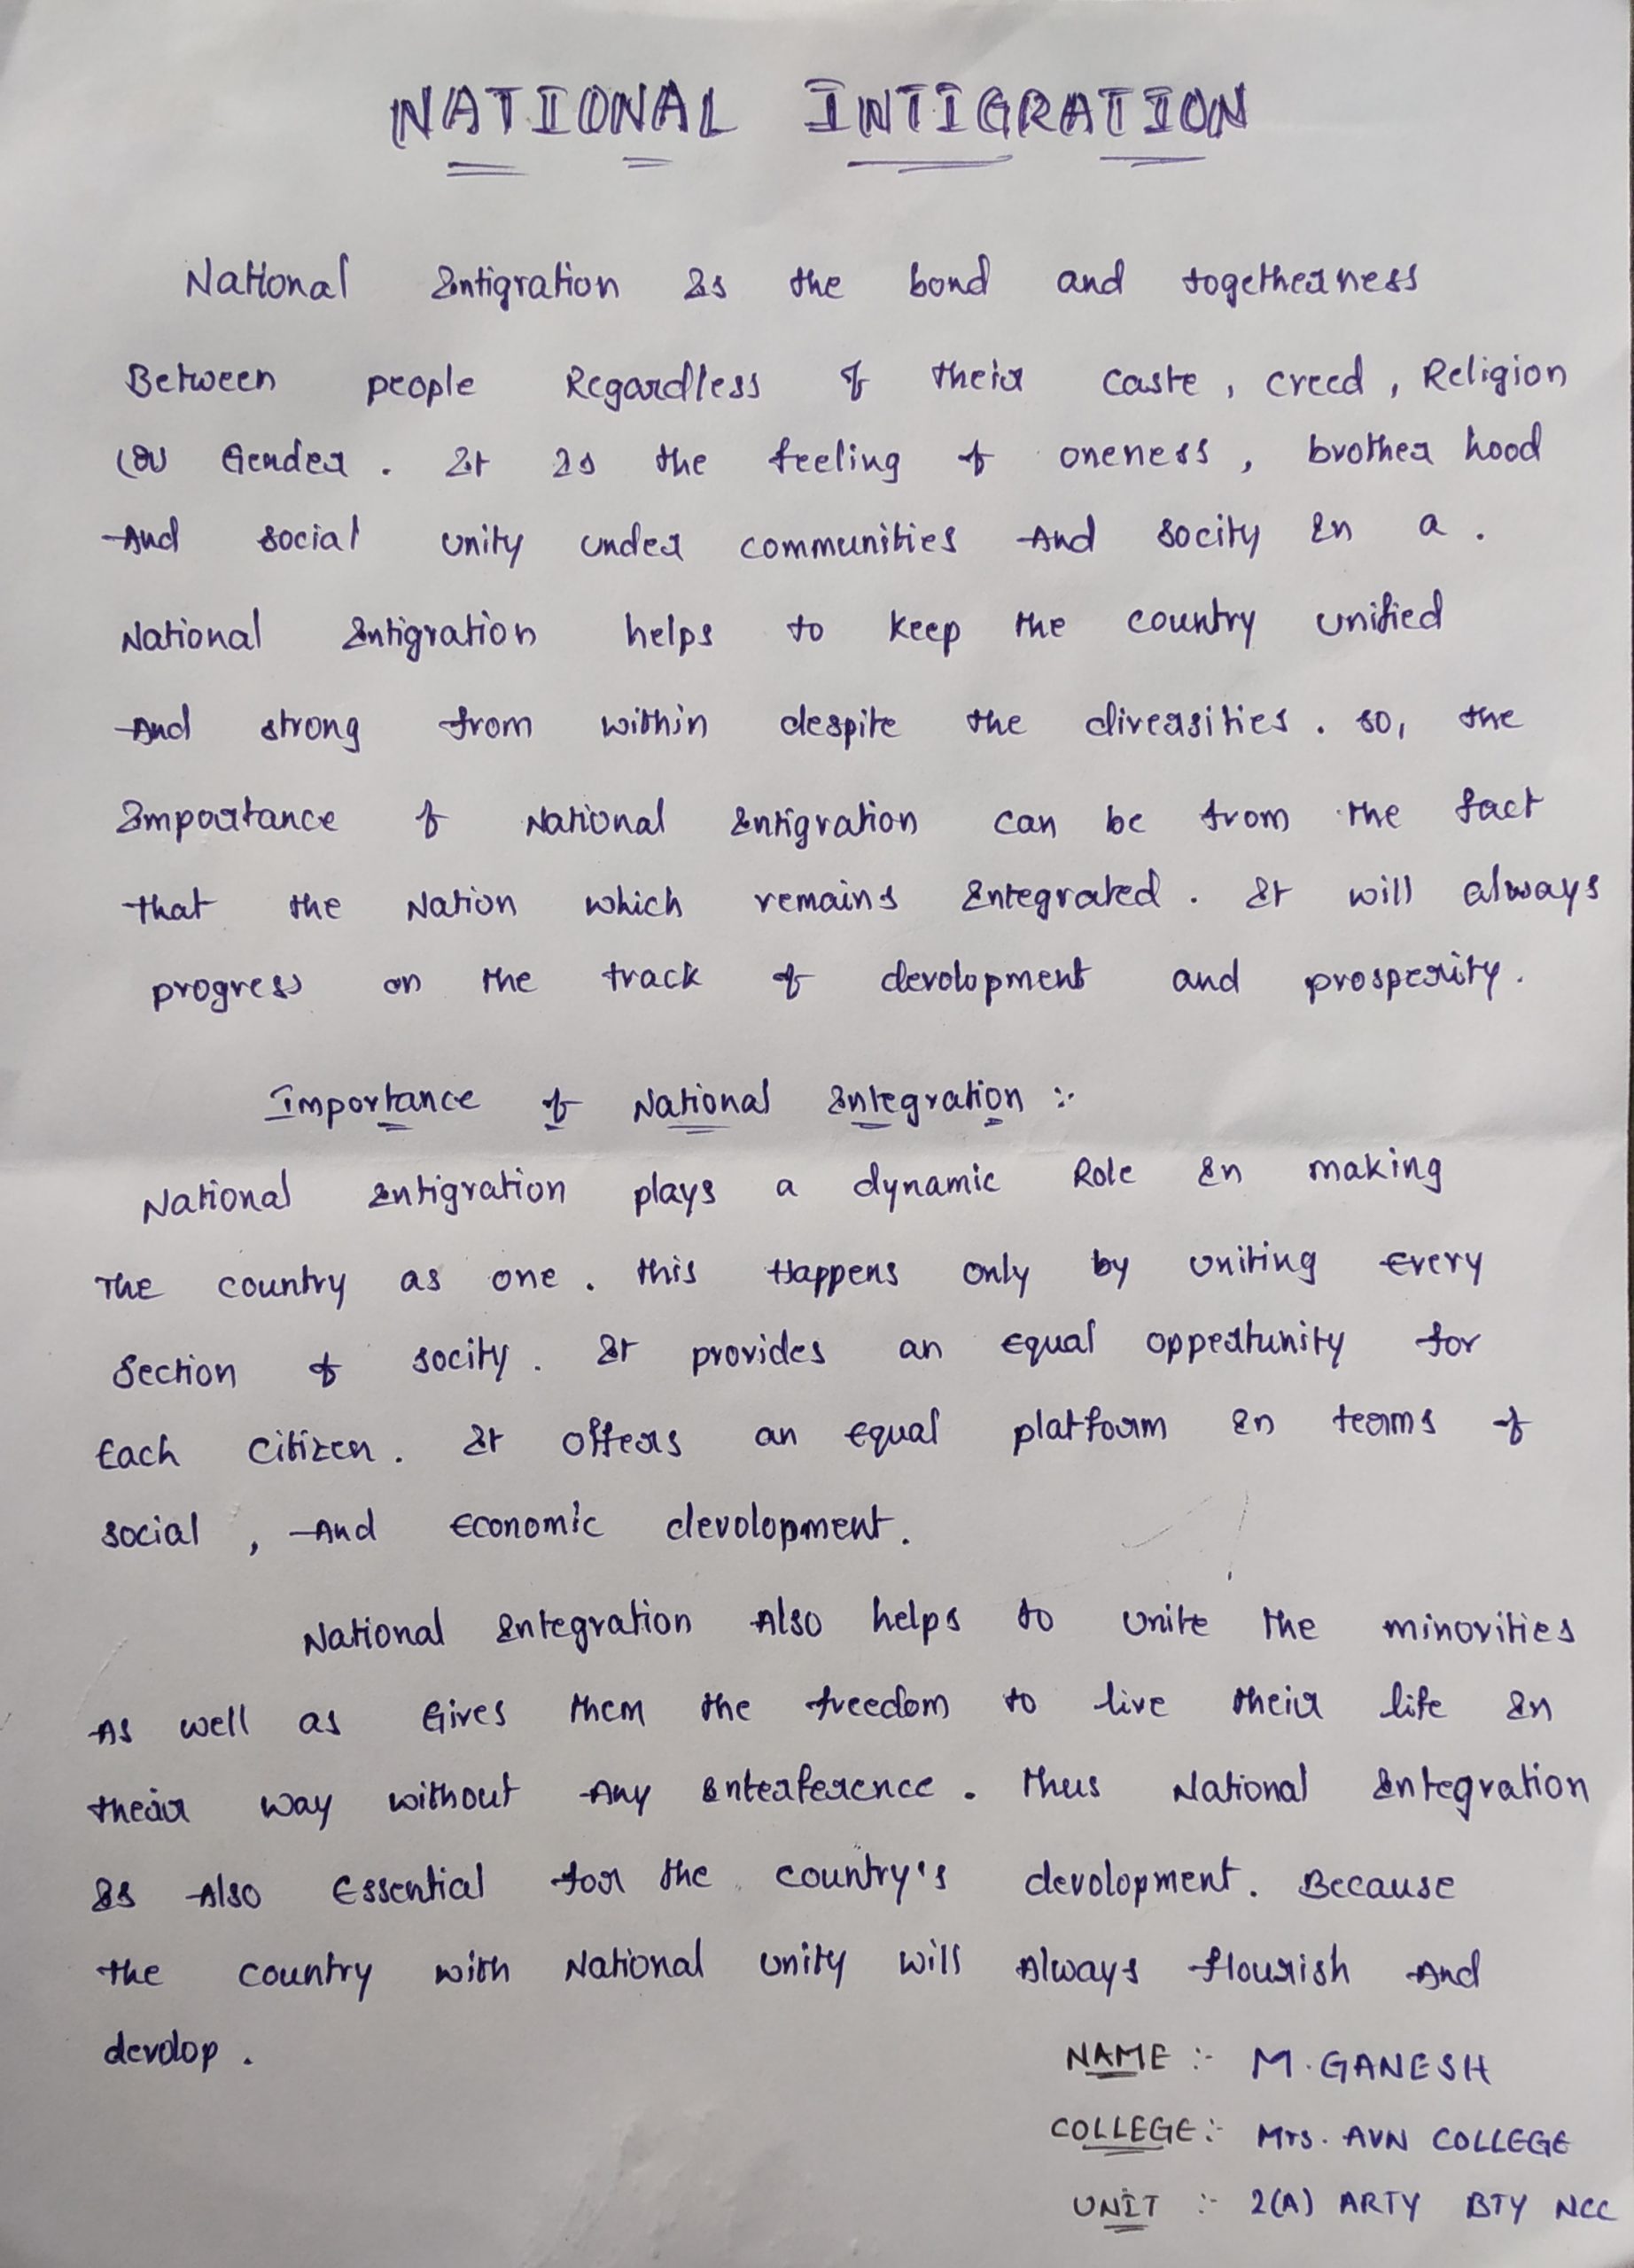 NATIONAL INTIGRATION
National Intigration Is the bond and togetherness
Between people Regardless of their caste, creed, Religion
(or) Gender. It Is the feeling of oneness, brother hood
And social unity under communities And socity In a.
National Intigration helps to keep the country unified
And strong from within despite the diversities. so, the
Importance of National Intigration can be from the fact
that the Nation which remains Integrated. It will always
progress on the track of devolopment and prosperity.
Importance of National Integration :-
National Intigration plays a dynamic Role In making
The country as one. this Happens only by uniting Every
Section of socity. It provides an Equal oppertunity for
Each citizen. It offers an Equal platform In terms of
social, And Economic devolopment.
National Integration Also helps to unite the minorities
As well as Gives them the freedom to live their life In
their way without Any Interference. Thus National Integration
Is Also Essential for the country's devolopment. Because
the country with National unity will Always flourish And
devolop.
NAME :- M. GANESH
COLLEGE:- Mrs. AVN COLLEGE
UNIT :- 2(A) ARTY BTY NCC